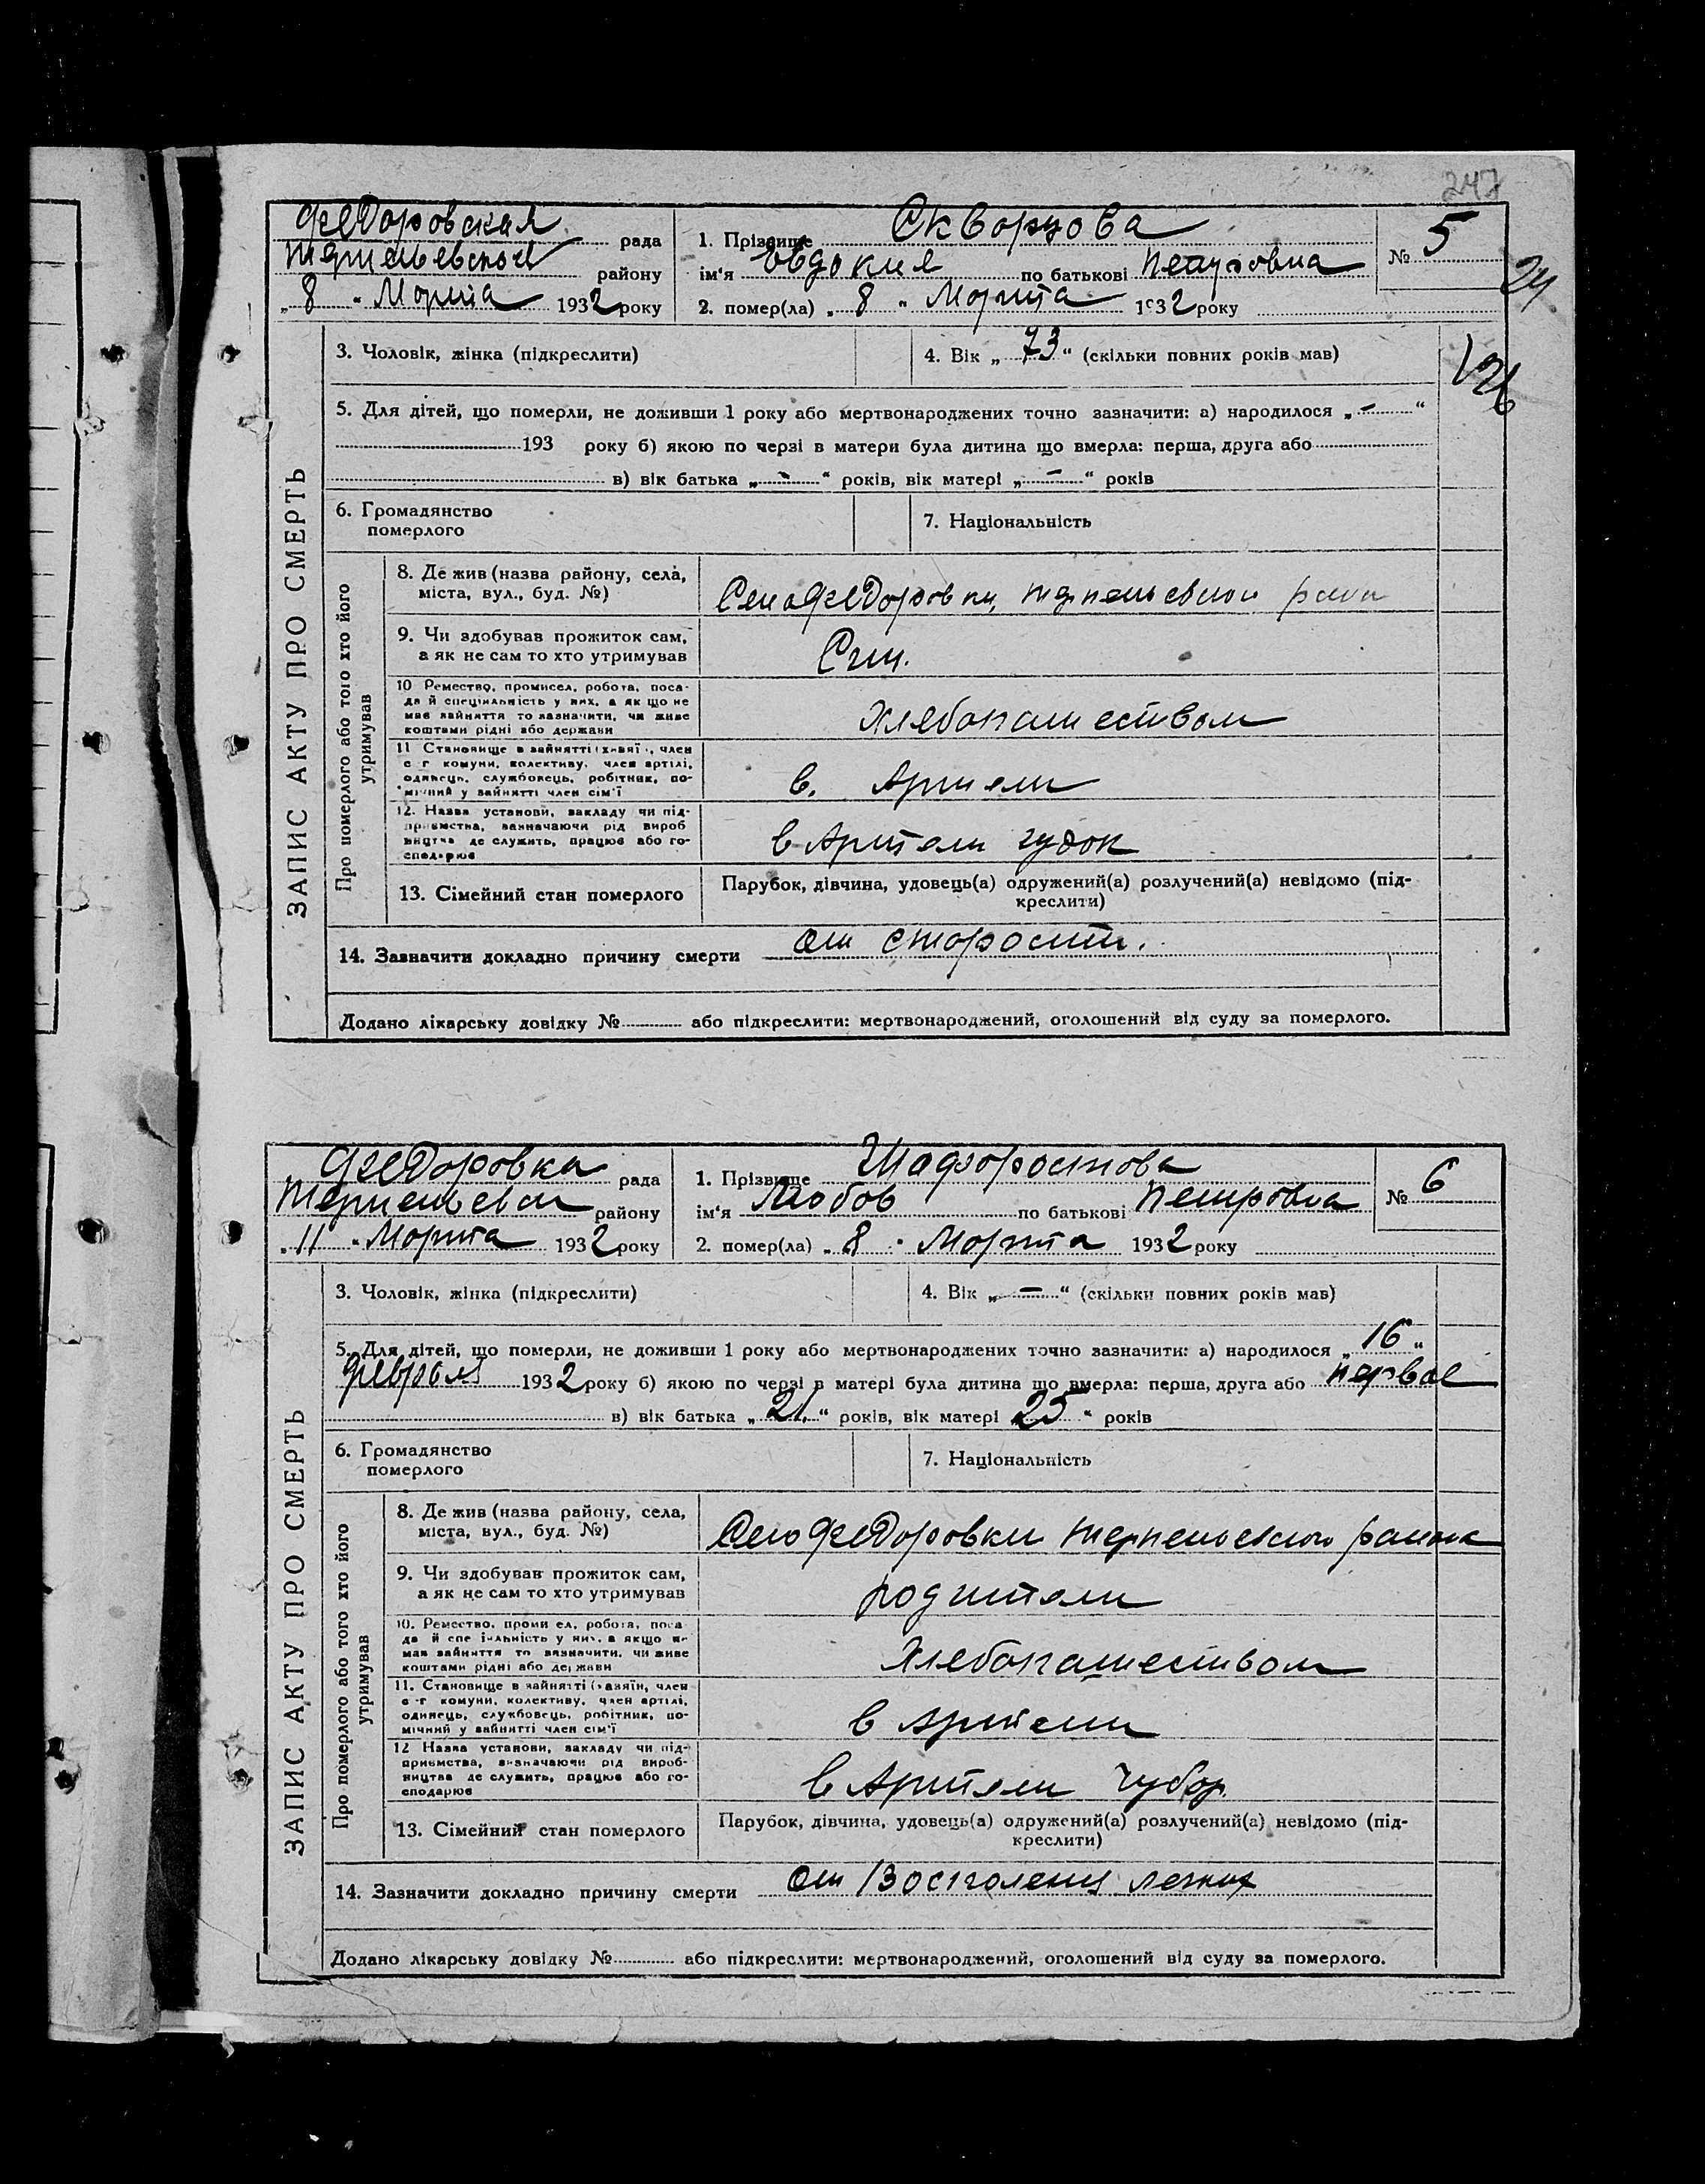 247
Федоровская рада
району
„8“ Марта 1932 року
1. Прізвище Скворцова
ім‘я Евдокия по батькові Петровна
2. помер(ла) „8“ Марта 1932 року
№ 5
24
3. Чоловік, жінка (підкреслити)
4. Вік „73“ (скільки повних років мав)
5. Для дітей, що померли, не доживши 1 року або мертвонароджених точно зазначити: а) народилося „-“
193 року б) якою по черзі в матери була дитина що вмерла: перша, друга або
в) вік батька „-“ років, вік матері „-“ років
6. Громадянство
померлого
7. Національність
ЗАПИС АКТУ ПРО СМЕРТЬ
Про померлого або того хто його
утримував
8. Де жив (назва району, села,
міста, вул., буд. №)
Село Федоровки,
9. Чи здобував прожиток сам,
а як не сам то хто утримував
10 Ремество, промисел, робота, поса-
да й спеціяльність у них, а як що не
має зайняття то зазначити, чи живе
коштами рідні або держави
Хлебопашеством
11 Становище в зайнятті (хазяїн, член
с г комуни, колективу, член артілі,
одинець, службовець, робітник, по-
мічний у зайнятті член сім‘ї
в. Артели
12. Назва установи, закладу чи під-
приємства, зазначаючи рід вироб
ництва де служить, працює або го-
сподарює
в Артели
13. Сімейний стан померлого
Парубок, дівчина, удовець(а) одружений(а) розлучений(а) невідомо (під-
креслити)
14. Зазначити докладно причину смерти от старости.
Додано лікарську довідку № або підкреслити: мертвонароджений, оголошений від суду за померлого.
Федоровка рада
району
„11“ Марта 1932 року
1. Прізвище Шафоростова
ім‘я Любов по батькові Петровна
2. помер(ла) „8“ Марта 1932 року
№ 6
3. Чоловік, жінка (підкреслити)
4. Вік „-“ (скільки повних років мав)
5. Для дітей, що померли, не доживши 1 року або мертвонароджених точно зазначити: а) народилося „16“
февраля 1932 року б) якою по черзі в матері була дитина що вмерла: перша, друга або первае
в) вік батька „21“ років, вік матері „25“ років
6. Громадянство
померлого
7. Національність
ЗАПИС АКТУ ПРО СМЕРТЬ
Про померлого або того хто його
утримував
8. Де жив (назва району, села,
міста, вул., буд. №)
Село Федоровки района
9. Чи здобував прожиток сам,
а як не сам то хто утримував
родители
10. Ремество, промисел, робота, поса
да й спеціяльність у них, а якщо не
має зайняття то зазначити, чи живе
коштами рідні або держави
Хлебопашеством
11. Становище в зайнятті (хазяїн, член
с-г комуни, колективу, член артілі,
одинець, службовець, робітник, по-
мічний у зайнятті член сім‘ї
в Артели
12 Назва установи, закладу чи під-
приємства, визначаючи рід вироб-
ництва де служить, працює або го-
сподарює
в Артели
13. Сімейний стан померлого
Парубок, дівчина, удовець(а) одружений(а) розлучений(а) невідомо (під-
креслити)
14. Зазначити докладно причину смерти от легких
Додано лікарську довідку № або підкреслити: мертвонароджений, оголошений від суду за померлого.